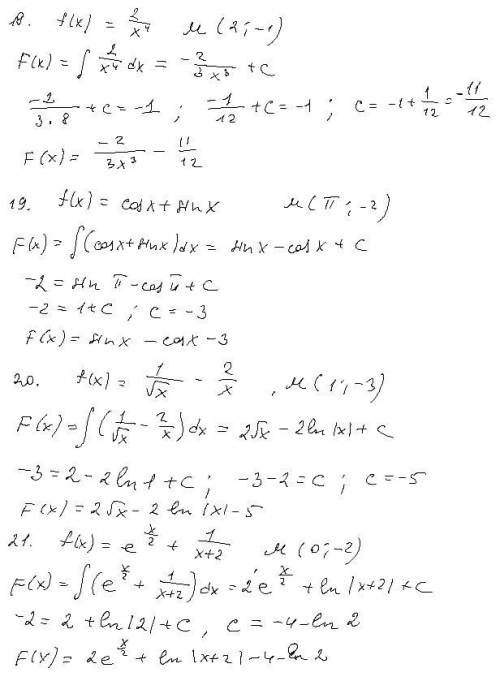 18. f(x) = 2/x⁴ M(2; -1)
F(x) = ∫ 2/x⁴ dx = -2/3x³ + C
-2/3·8 + C = -1 ; -1/12 + C = -1 ; C = -1 + 1/12 = -11/12
F(x) = -2/3x³ - 11/12
19. f(x) = cosx + sinx M(π; -2)
F(x) = ∫(cosx + sinx)dx = sinx - cosx + C
-2 = sin π - cos π + C
-2 = 1 + C ; C = -3
F(x) = sinx - cosx - 3
20. f(x) = 1/√x - 2/x , M(1; -3)
F(x) = ∫(1/√x - 2/x)dx = 2√x - 2ln|x| + C
-3 = 2 - 2ln1 + C ; -3-2 = C ; C = -5
F(x) = 2√x - 2 ln|x| - 5
21. f(x) = e^(x/2) + 1/(x+2) M(0; -2)
F(x) = ∫(e^(x/2) + 1/(x+2))dx = 2e^(x/2) + ln|x+2| + C
-2 = 2 + ln|2| + C , C = -4 - ln 2
F(x) = 2e^(x/2) + ln|x+2| - 4 - ln 2